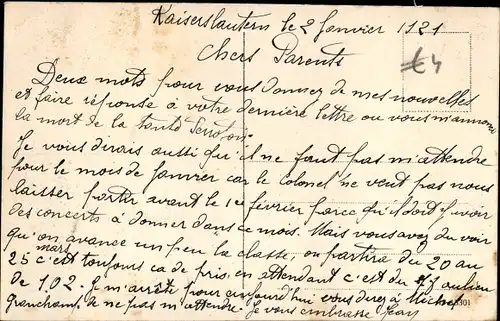 Kaiserslautern le 2 Janvier 1921
Chers Parents
£4
Deux mots pour vous donner de mes nouvelles
et faire réponse à votre dernière lettre ou vous m'annonce
la mort de la tante
Je vous dirais aussi qu'il ne faut pas m'attendre
pour le mois de Janvier car le colonel ne veut pas nous
laisser partir avant le 1er février parce qu'il doit y avoir
des concerts à donner dans ce mois. Mais vous avez du voir
qu'on avance un peu la classe, on partira du 20 au
25 mars c'est toujours ca de pris, en attendant c'est du au lieu
de 102. Je m'arrête pour aujourd'hui vous direz à Michel
Granchamp de ne pas m'attendre. Je vous embrasse